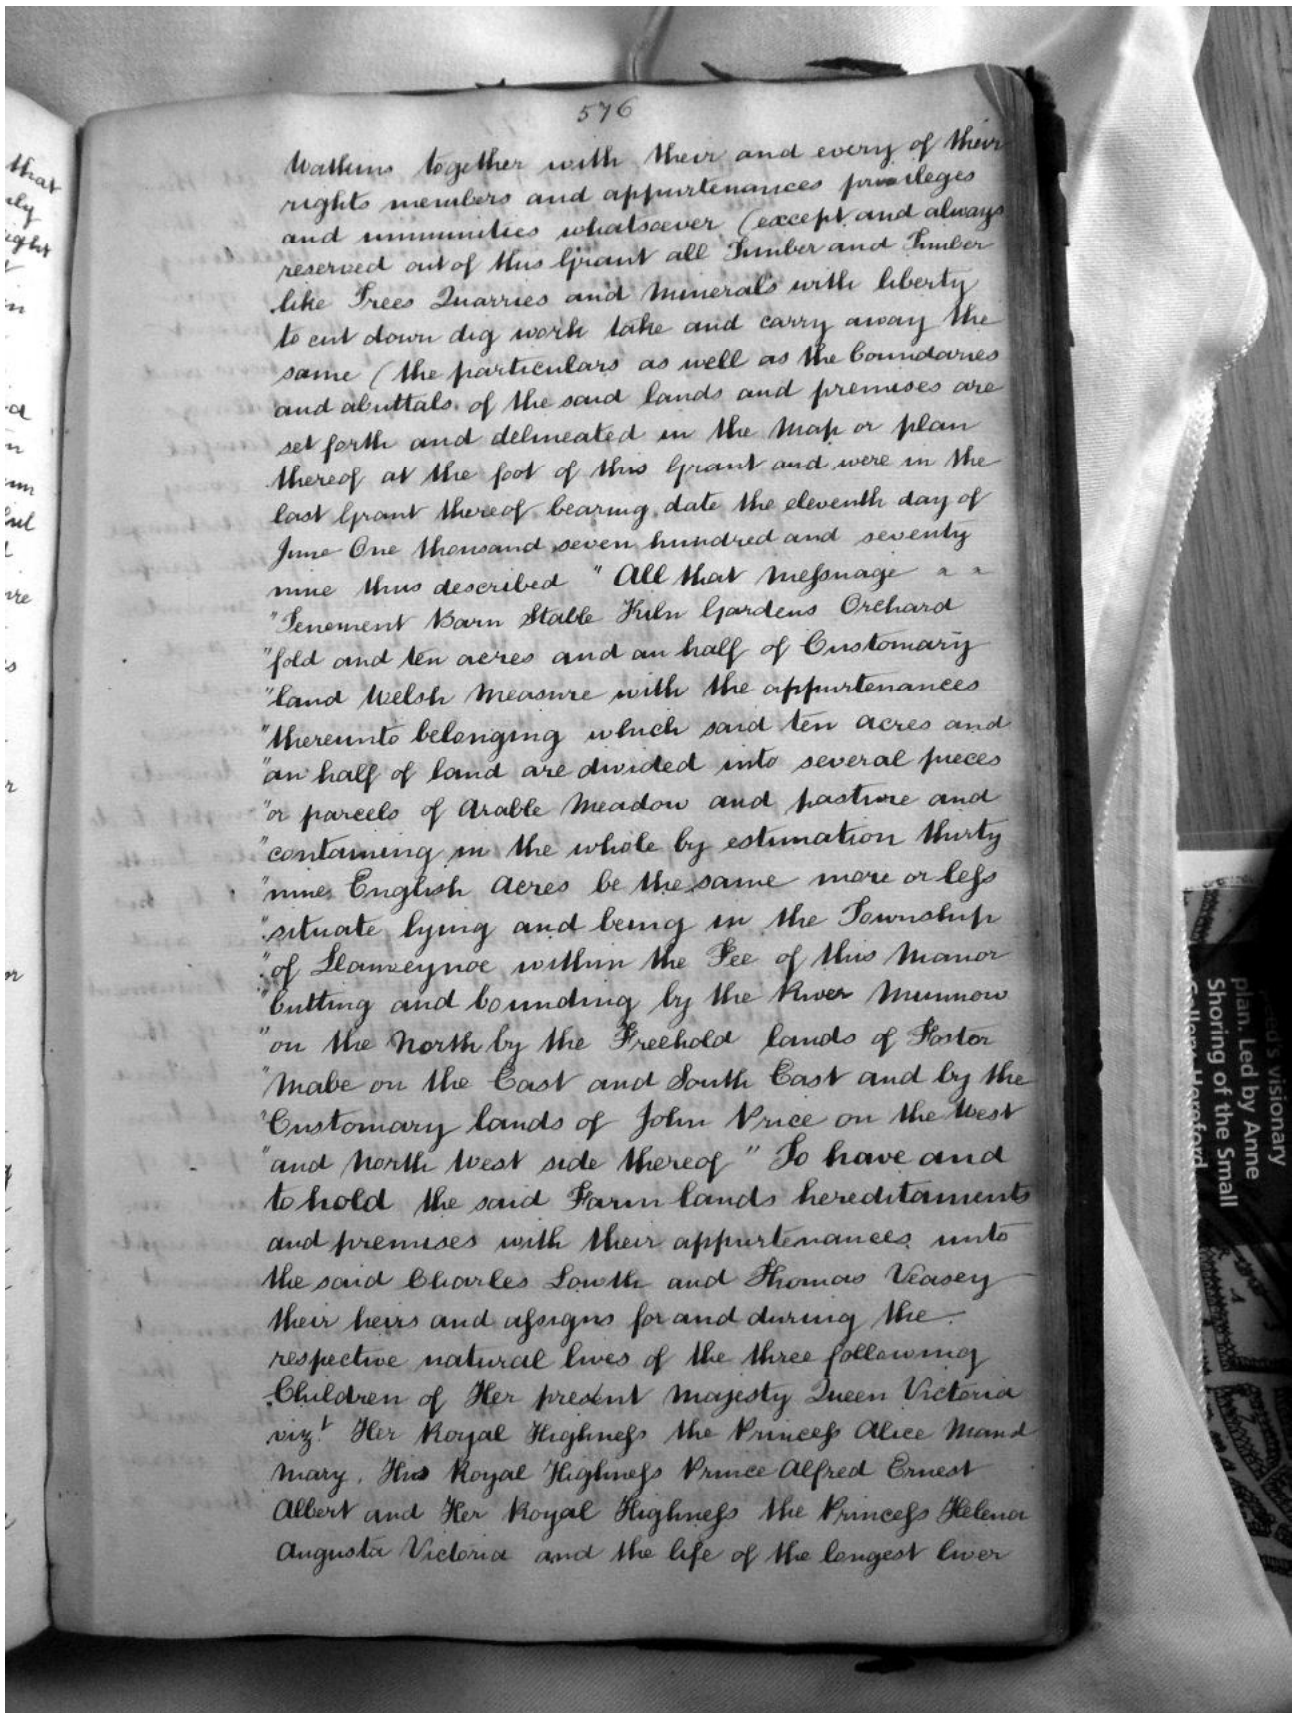 576
Watkins together with their and every of their
rights members and appurtenances privileges
and immunities whatsoever (except and always
reserved out of this Grant all Timber and Timber
like Trees Quarries and Minerals with liberty
to cut down dig work take and carry away the
same (the particulars as well as the boundaries
and abuttals of the said lands and premises are
set forth and delineated in the Map or plan
thereof at the foot of this Grant and were in the
last Grant thereof bearing date the eleventh day of
June One thousand seven hundred and seventy
nine thus described " All that Messuage " "
"Tenement Barn Stable Kiln Gardens Orchard
"fold and ten acres and an half of Customary
"land Welsh Measure with the appurtenances
"thereunto belonging which said ten acres and
"an half of land are divided into several pieces
"or parcels of Arable Meadow and pasture and
"containing in the whole by estimation thirty
"nine English Acres be the same more or less
"situate lying and being in the Township
"of Llanveynoe within the Fee of this Manor
"butting and bounding by the River Munnow
"on the North by the Freehold lands of Foster
"Mabe on the East and South East and by the
"Customary lands of John Price on the West
"and North West side thereof" To have and
to hold the said Farm lands hereditaments
and premises with their appurtenances unto
the said Charles Lowth and Thomas Veasey
their heirs and assigns for and during the
respective natural lives of the three following
Children of Her present Majesty Queen Victoria
vizt. Her Royal Highness the Princess Alice Maud
Mary, His Royal Highness Prince Alfred Ernest
Albert and Her Royal Highness the Princess Helena
Augusta Victoria and the life of the longest liver
that
ight
visionary
plan. Led by Anne
Shoring of the Small
Gallery Hereford